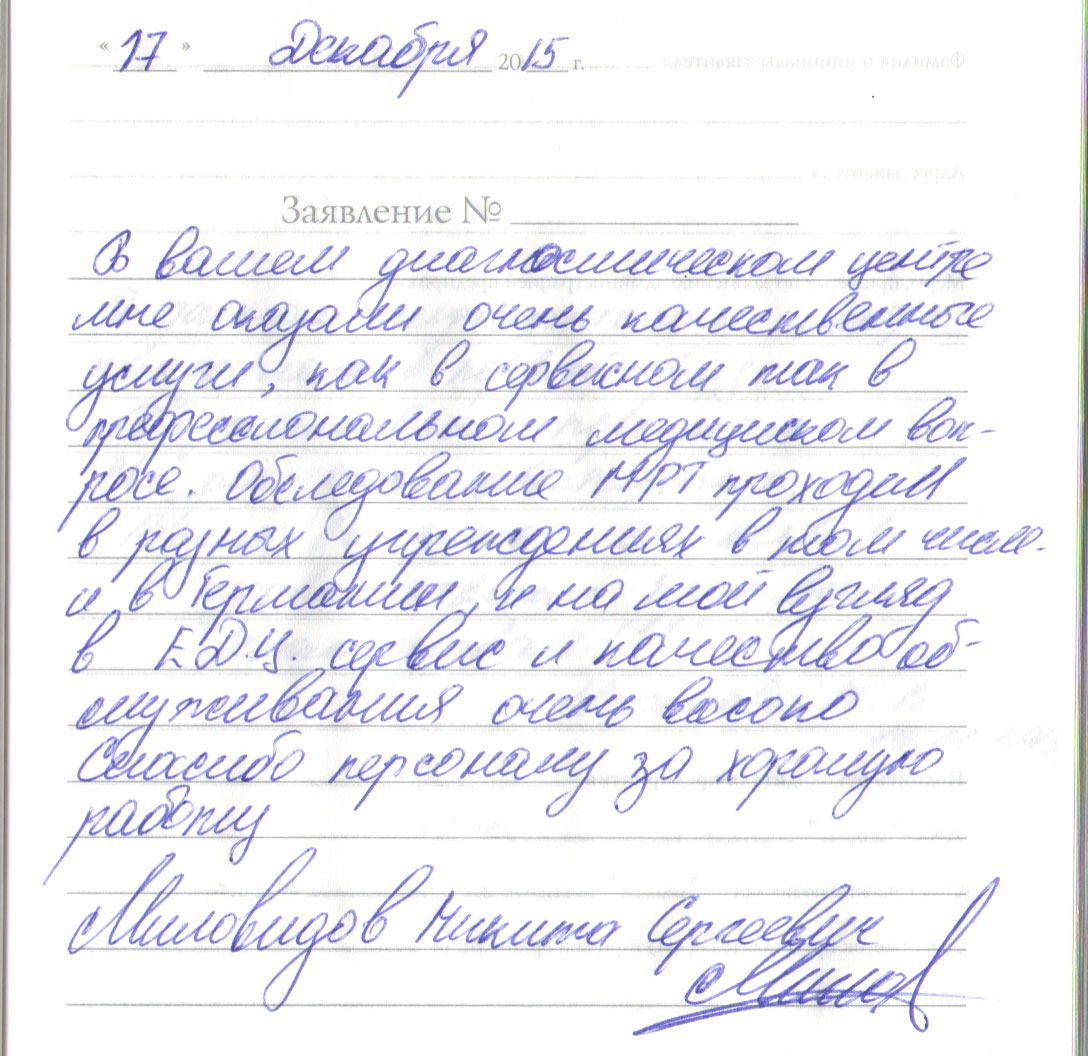 « 17 » Декабря 2015 г.
Заявление №
В вашем диагностическом центре
мне оказали очень качественные
услуги, как в сервисном так в
профессиональном медициском воп-
росе. Обследование МРТ проходил
в разных учреждениях в том числе
и в Германии, и на мой взгляд
в Е.Д.Ц. сервис и качество об-
служивания очень высоко
Спасибо персоналу за хорошую
работу
Миловидов Никита Сергеевич